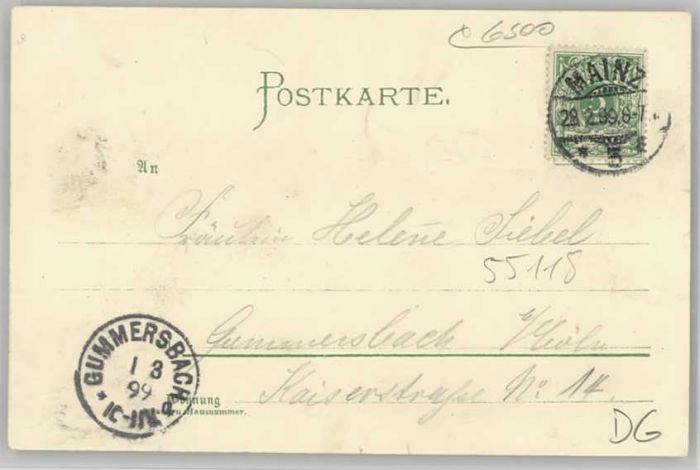 6500
POSTKARTE.
MAINZ
28.2.99.8-
An
Fräulein Helene Siebel
55118
Gummersbach b/Köln
Kaiserstraße No. 14.
GUMMERSBACH
1 3
99
Wohnung
Hausnummer.
DG